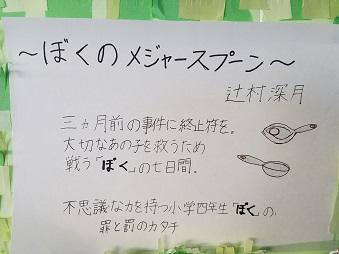 ～ぼくのメジャースプーン～
辻村深月
三ヵ月前の事件に終止符を。
大切なあの子を救うため
戦う「ぼく」の七日間。
不思議な力を持つ小学四年生「ぼく」の、
罪と罰のカタチ